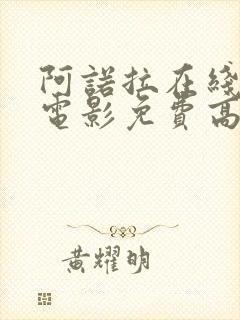 阿諾拉在綫
電影免費高
黃耀明